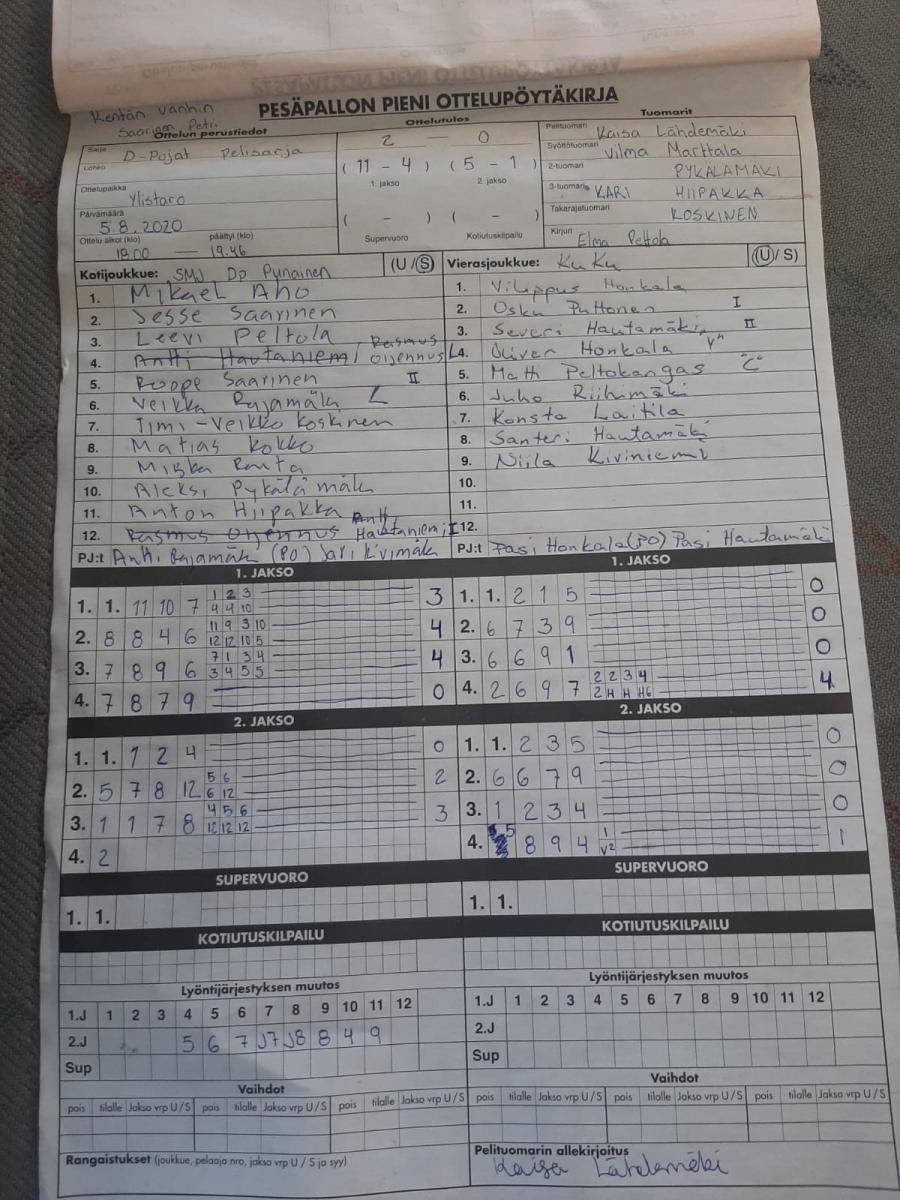 PESÄPALLON PIENI OTTELUPÖYTÄKIRJA
Kentän vanhin
Saarinen Petri
Ottelun perustiedot
Sarja
D-Pojat Pelisarja
Lohko
Ottelupaikka
Ylistaro
Päivämäärä
5.8.2020
Ottelu alkoi (klo) päättyi (klo)
18.00 — 19.46
Ottelutulos
2 - 0
(11 - 4) (5 - 1)
1. jakso 2. jakso
( - ) ( - )
Supervuoro Kotiutuskilpailu
Tuomarit
Pelituomari Kaisa Lähdemäki
Syöttötuomari Vilma Marttala
2-tuomari PYKÄLÄMÄKI
3-tuomari KARI HIIPAKKA
Takarajatuomari KOSKINEN
Kirjuri Elma Peltola
Kotijoukkue: SMJ Dp Punainen (U/S)
1. Mikael Aho
2. Jesse Saarinen
3. Leevi Peltola
4. Antti Hautaniemi Rasmus Oijennus L
5. Roope Saarinen II
6. Veikka Rajamäki
7. Timi-Veikko Koskinen
8. Matias Kokko
9. Miska Ranta
10. Aleksi Pykälämäki
11. Anton Hiipakka
12. Rasmus Oijennus Antti Hautaniemi I
PJ:t Antti Rajamäki (PO) Jari Kivimäki
Vierasjoukkue: KuKu (U/S)
1. Vilippus Honkala
2. Osku Puttonen I
3. Severi Hautamäki II
4. Oliver Honkala "V"
5. Matti Peltokangas "L"
6. Juho Riihimäki
7. Konsta Laitila
8. Santeri Hautamäki
9. Niila Kiviniemi
10.
11.
12.
PJ:t Pasi Honkala (PO) Pasi Hautamäki
1. JAKSO
1. 1. 11 10 7 1 2 3 3
4 4 10
2. 8 8 4 6 11 9 3 10 4
12 12 10 5
3. 7 8 9 6 7 1 3 4 4
3 4 5 5
4. 7 8 7 9 0
1. JAKSO
1. 1. 2 1 5 0
2. 6 7 3 9 0
3. 6 6 9 1 0
4. 2 6 9 7 2 2 3 4 4
2 H H H6
2. JAKSO
1. 1. 1 2 4 0
2. 5 7 8 12 5 6 2
6 12
3. 1 1 7 8 4 5 6 3
12 12 12
4. 2
2. JAKSO
1. 1. 2 3 5 0
2. 6 6 7 9 0
3. 1 2 3 4 0
4. 5 8 9 4 1 1
V2
SUPERVUORO
1. 1.
SUPERVUORO
1. 1.
KOTIUTUSKILPAILU
KOTIUTUSKILPAILU
Lyöntijärjestyksen muutos
1.J 1 2 3 4 5 6 7 8 9 10 11 12
2.J 5 6 7 J7 J8 8 4 9
Sup
Lyöntijärjestyksen muutos
1.J 1 2 3 4 5 6 7 8 9 10 11 12
2.J
Sup
Vaihdot
pois tilalle Jakso vrp U/S pois tilalle Jakso vrp U/S pois tilalle Jakso vrp U/S
Vaihdot
pois tilalle Jakso vrp U/S pois tilalle Jakso vrp U/S pois tilalle Jakso vrp U/S
Rangaistukset (joukkue, pelaaja nro, jakso vrp U / S ja syy)
Pelituomarin allekirjoitus
Kaisa Lähdemäki